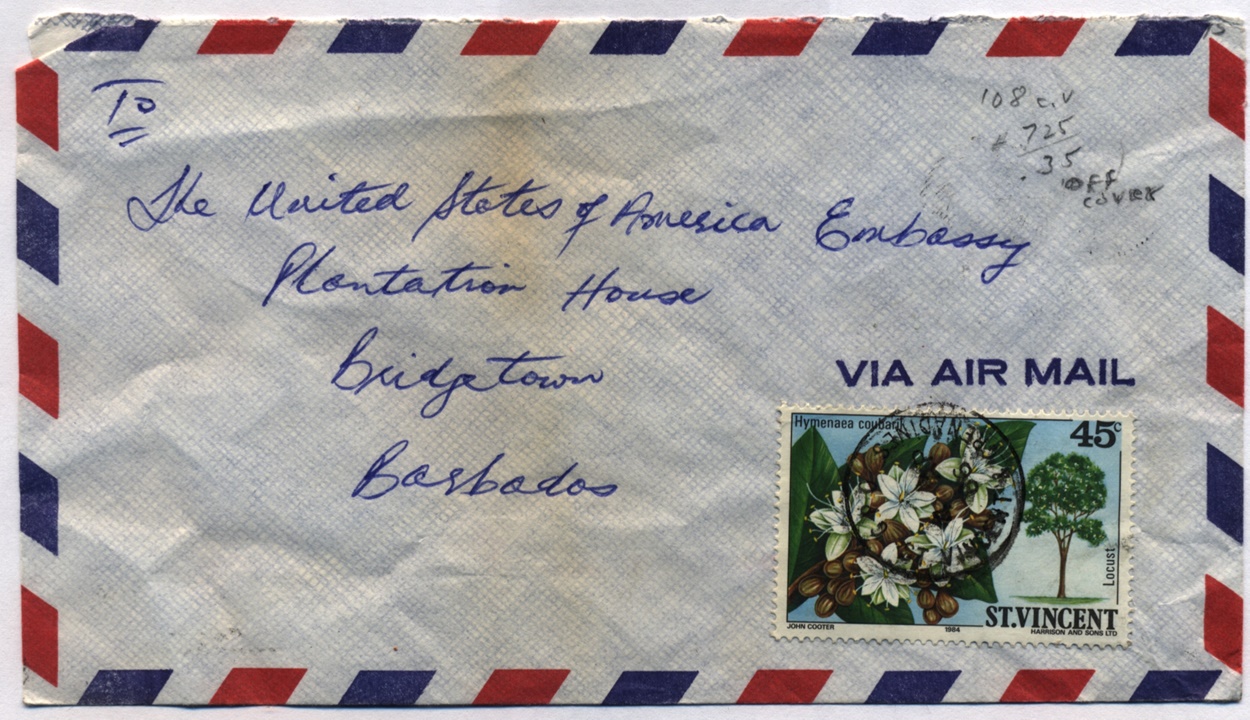 To
108 c.v
.725
.35
OFF
COVER
The United States of America Embassy
Plantation House
Bridgetown
Barbados
VIA AIR MAIL
Hymenaea coubaril
45c
Locust
ST.VINCENT
JOHN COOTER
1984
HARRISON AND SONS LTD